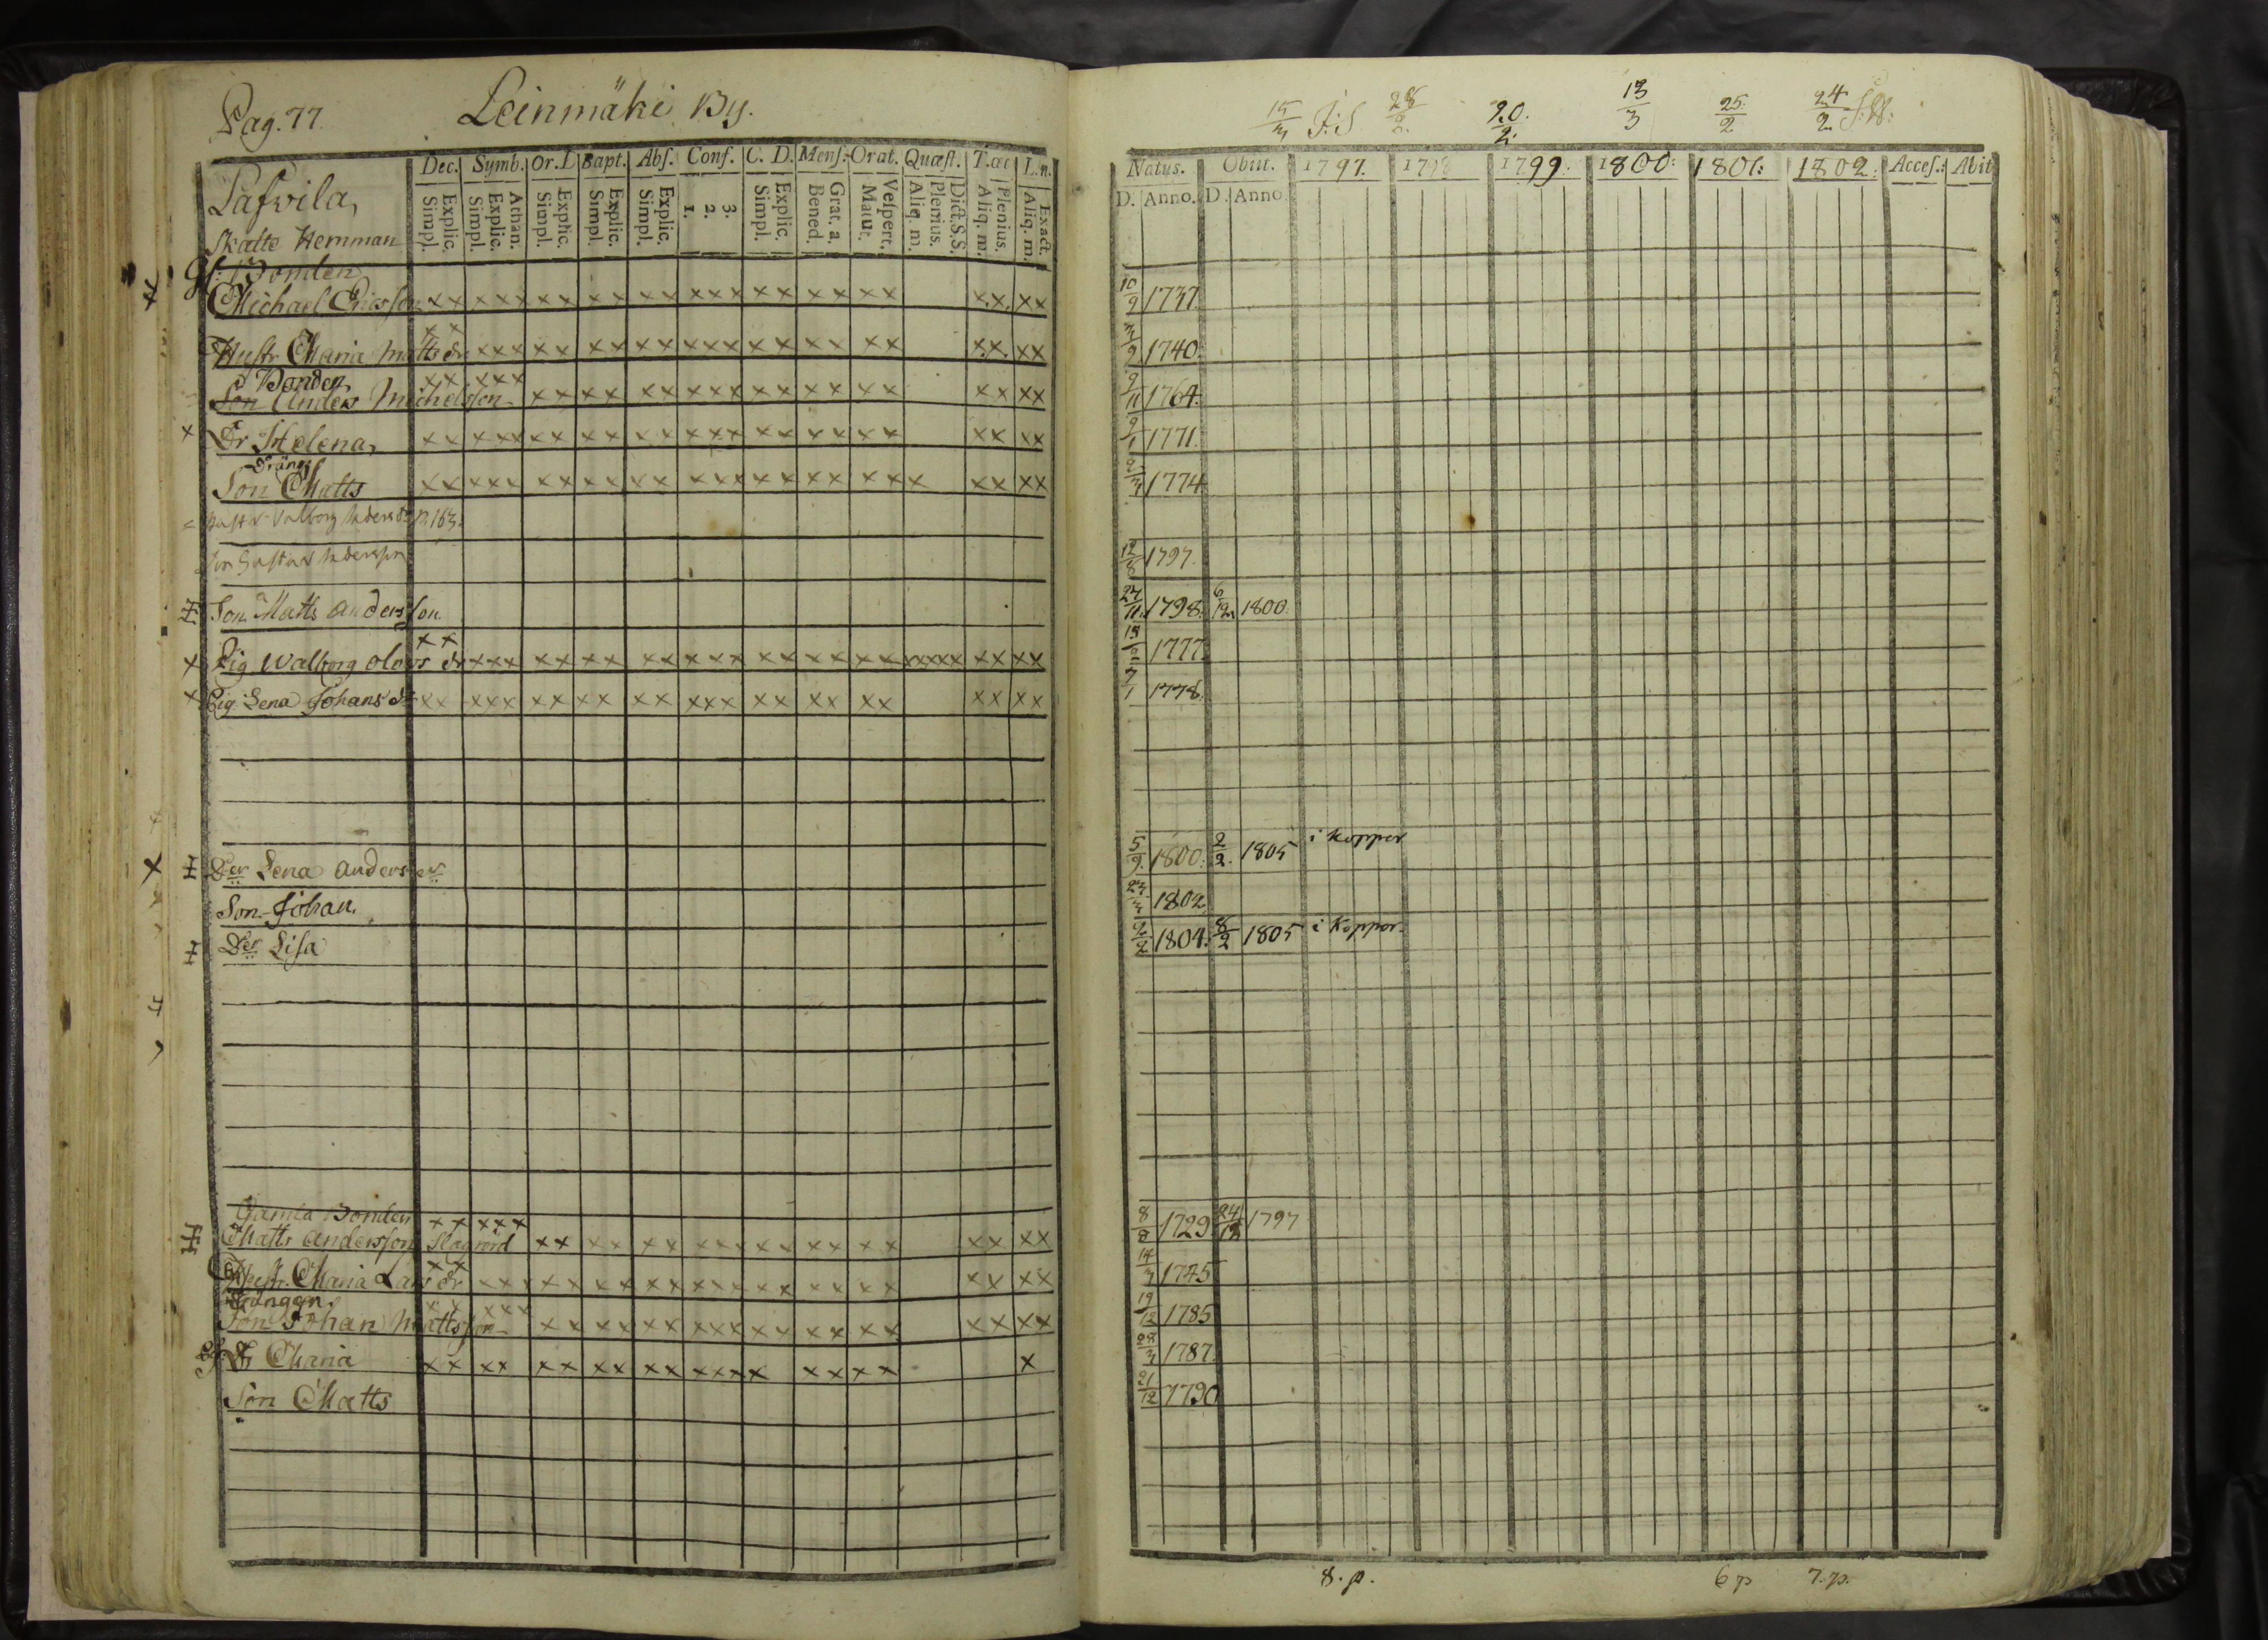 Pag. 77. Leinmäki By.
Dec. Symb. Or.D. Bapt. Abſ. Conf. C. D. Menſ. Orat. Quæſt. T.æc L.n.
Explic. Simpl. Athan. Explic. Simpl. Explic. Simpl. Explic. Simpl. Explic. Simpl. 3. 2. 1. Explic. Simpl. Grat. a. Bened. Veſpert. Matut. Dict.S.S. Plenius. Aliq. m. Plenius. Aliq. m. Exact. Aliq. m.
Skatte Hemman
Bonden
Michael Ericsson xx xxx xx xx xx xxx xx xx xx xx xx
Hustr Maria Matts dr xx xxx xx xx xx xxx xx xx xx xx xx
Bonden
Son Anders Michelsson xx xxx xx xx xx xxx xx xx xx xx xx
Dr Helena xx xxx xx xx xx xxx xx xx xx xx xx
Dräng
Son Matts xx xxx xx xx xx xxx xx xx xx x xx xx
Hustr Valborg Anders dr p. 163.
Son Gustav Andersson
Son Matts Andersson
Pig Walborg Olovs dr xx xxx xx xx xx xxx xx xx xx xxxxx xx xx
Pig Lena Johans dr xx xxx xx xx xx xxx xx xx xx xx xx
Der Lena Anders er
Son Johan
Der Lisa
Gamla Bonden
Matts Andersson Slagrörd xx xxx xx xx xx xxx xx xx xx xx xx
Hustr. Maria Lars dr xx xxx xx xx xx xxx xx xx xx xx xx
Drängen
Son Johan Mattsson xx xxx xx xx xx xxx xx xx xx xx xx
Dr Maria xx xx xx xx xx xxx x xx xx x
Son Matts
15/3 J:S 28/2. 20./2. 13/3 25./2 24/2.
Natus. Obiit. 1797. 1798 1799. 1800: 1801: 1802. Acceſ.: Abit
D. Anno. D. Anno.
10/9 1737.
1740.
9/11 1764.
9/1 1771.
1774
12/6 1797.
27/11. 1798. 6/12. 1800.
1777.
7/1 1778.
5/9. 1800. 2/2. 1805 i koppor
23/3 1802.
2/2 1804. 8/2 1805 i Koppor.
8/8 1729. 24/12 1797
14/3 1745
19/12 1785
28/3 1787.
21/12 1790
8. p. 6 p 7. p.